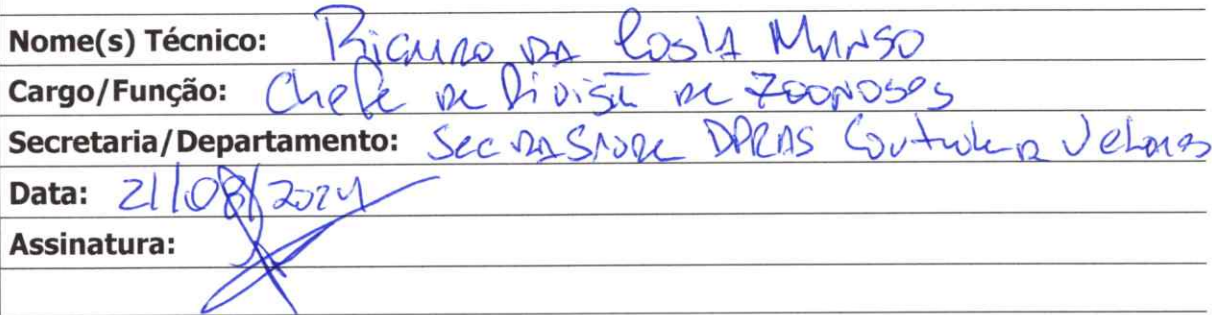 Nome(s) Técnico: Ricardo da Costa Manso
Cargo/Função: Chefe de Divisão de Zoonoses
Secretaria/Departamento: Sec da Saúde Controle
Data: 21/08/2024
Assinatura: